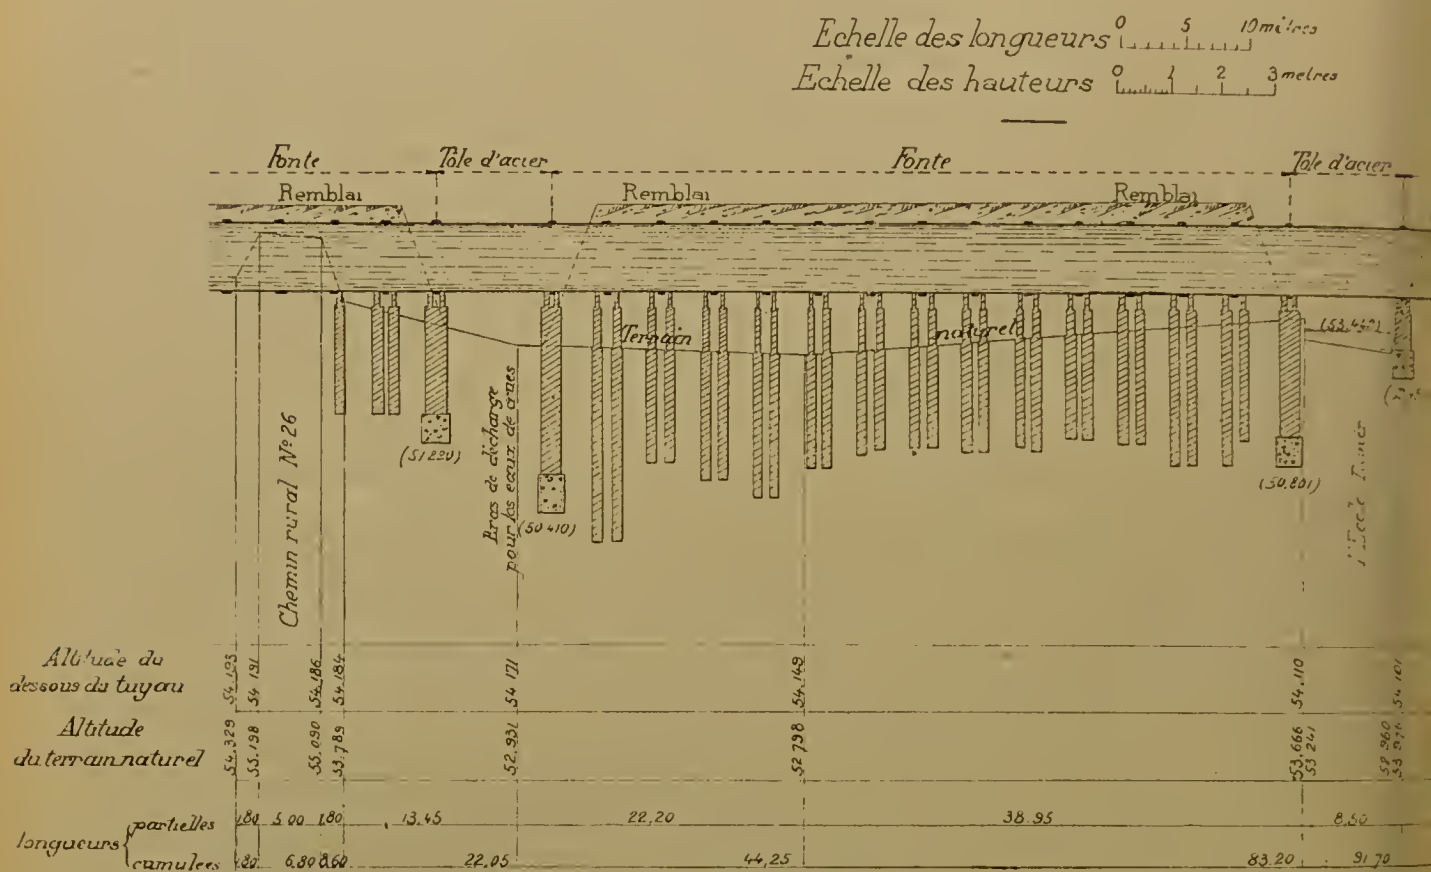 Echelle des longueurs 0 5 10 mètres
Echelle des hauteurs 0 1 2 3 metres
Fonte Tôle d'acier Fonte Tôle d'acier
Remblai Remblai Remblai
Terrain naturel
(51.220)
(50.410)
(50.801)
Chemin rural Nº 26
Bras de décharge
pour les eaux de crues
Altitude du
dessous du tuyau
54.191 54.186 54.184 54 171 54.149 54.110 54 101
Altitude
du terrain naturel
54.329 55.198 55.090 53.789 52.931 52 798 53.666 53 241
longueurs
partielles 1.80 5 00 1.80 13.45 22,20 38.95 8.50
cumulées 1.80 6.80 8.60 22.05 44,25 83.20 91 70